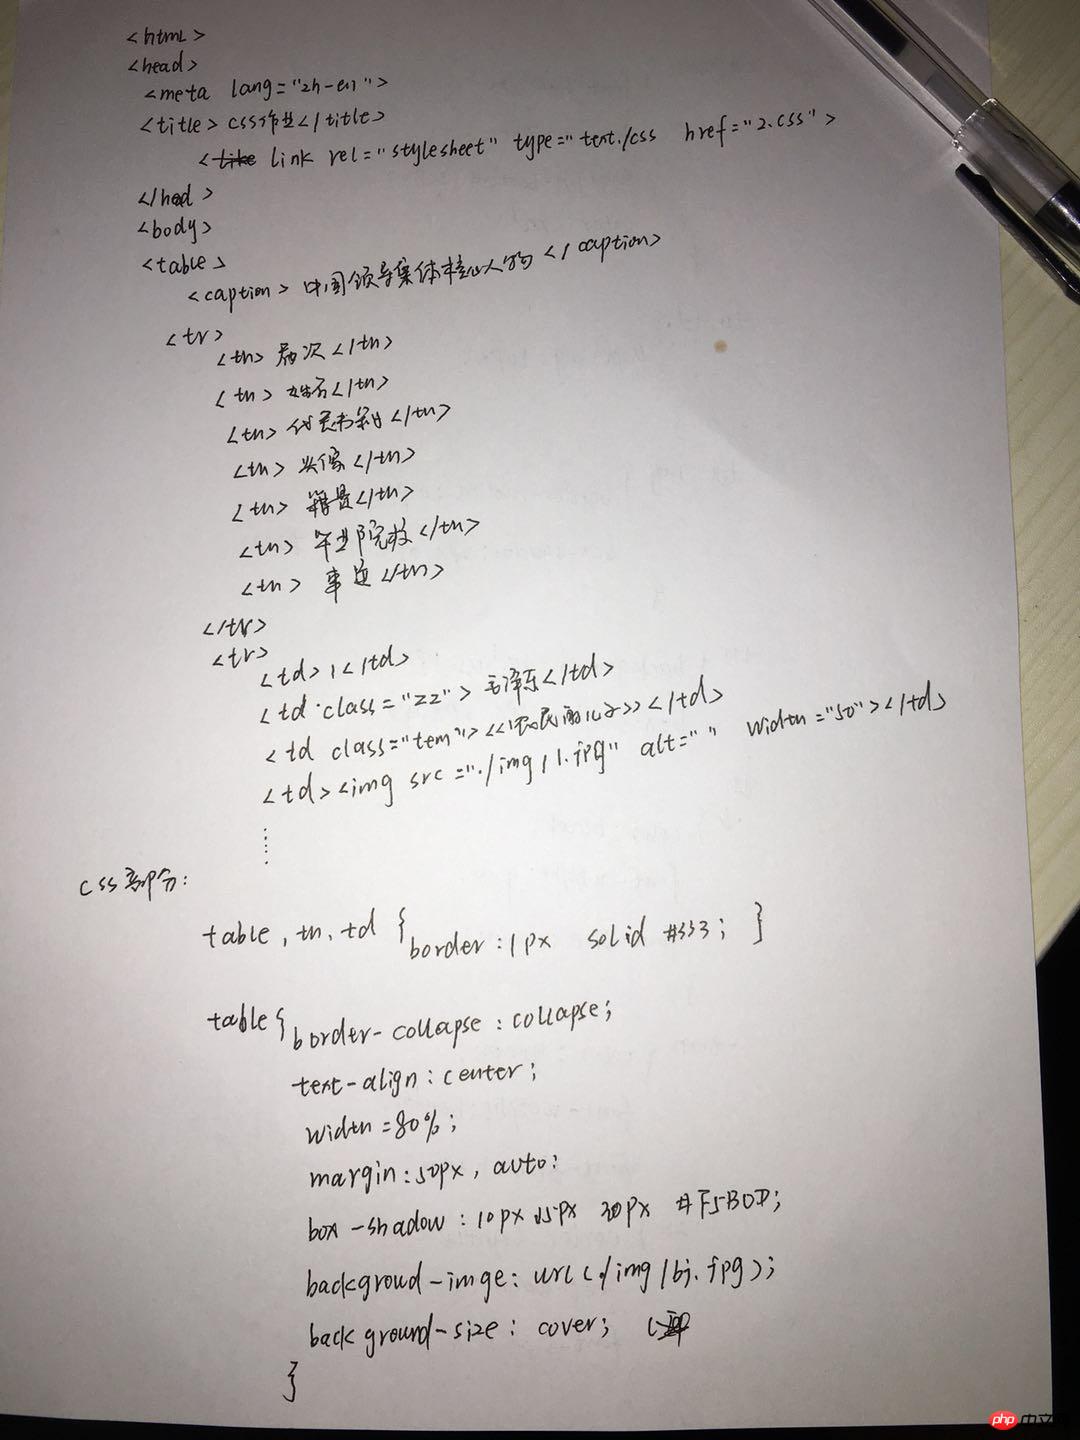 <html>
<head>
<meta lang="zh-en">
<title> css作业</title>
<link rel="stylesheet" type="text/css href="2.css">
</head>
<body>
<table>
<caption> 中国领导集体核心人物 </caption>
<tr>
<th> 届次 </th>
<th> 姓名</th>
<th> 代表书籍 </th>
<th> 头像 </th>
<th> 籍贯</th>
<th> 毕业院校 </th>
<th> 事迹 </th>
</tr>
<tr>
<td>1</td>
<td class="zz"> 毛泽东</td>
<td class="tem"><<农民的儿子>></td>
<td><img src="./img/1.jpg" alt=" " width="50"></td>
......
css部分:
table, th, td { border:1px solid #333; }
table{ border-collapse:collapse;
text-align:center;
width=80%;
margin:50px, auto:
box-shadow:10px 15px 30px #F5B0D;
backgroud-imge: url(./img/bj.jpg);
background-size: cover;
}
php 中文